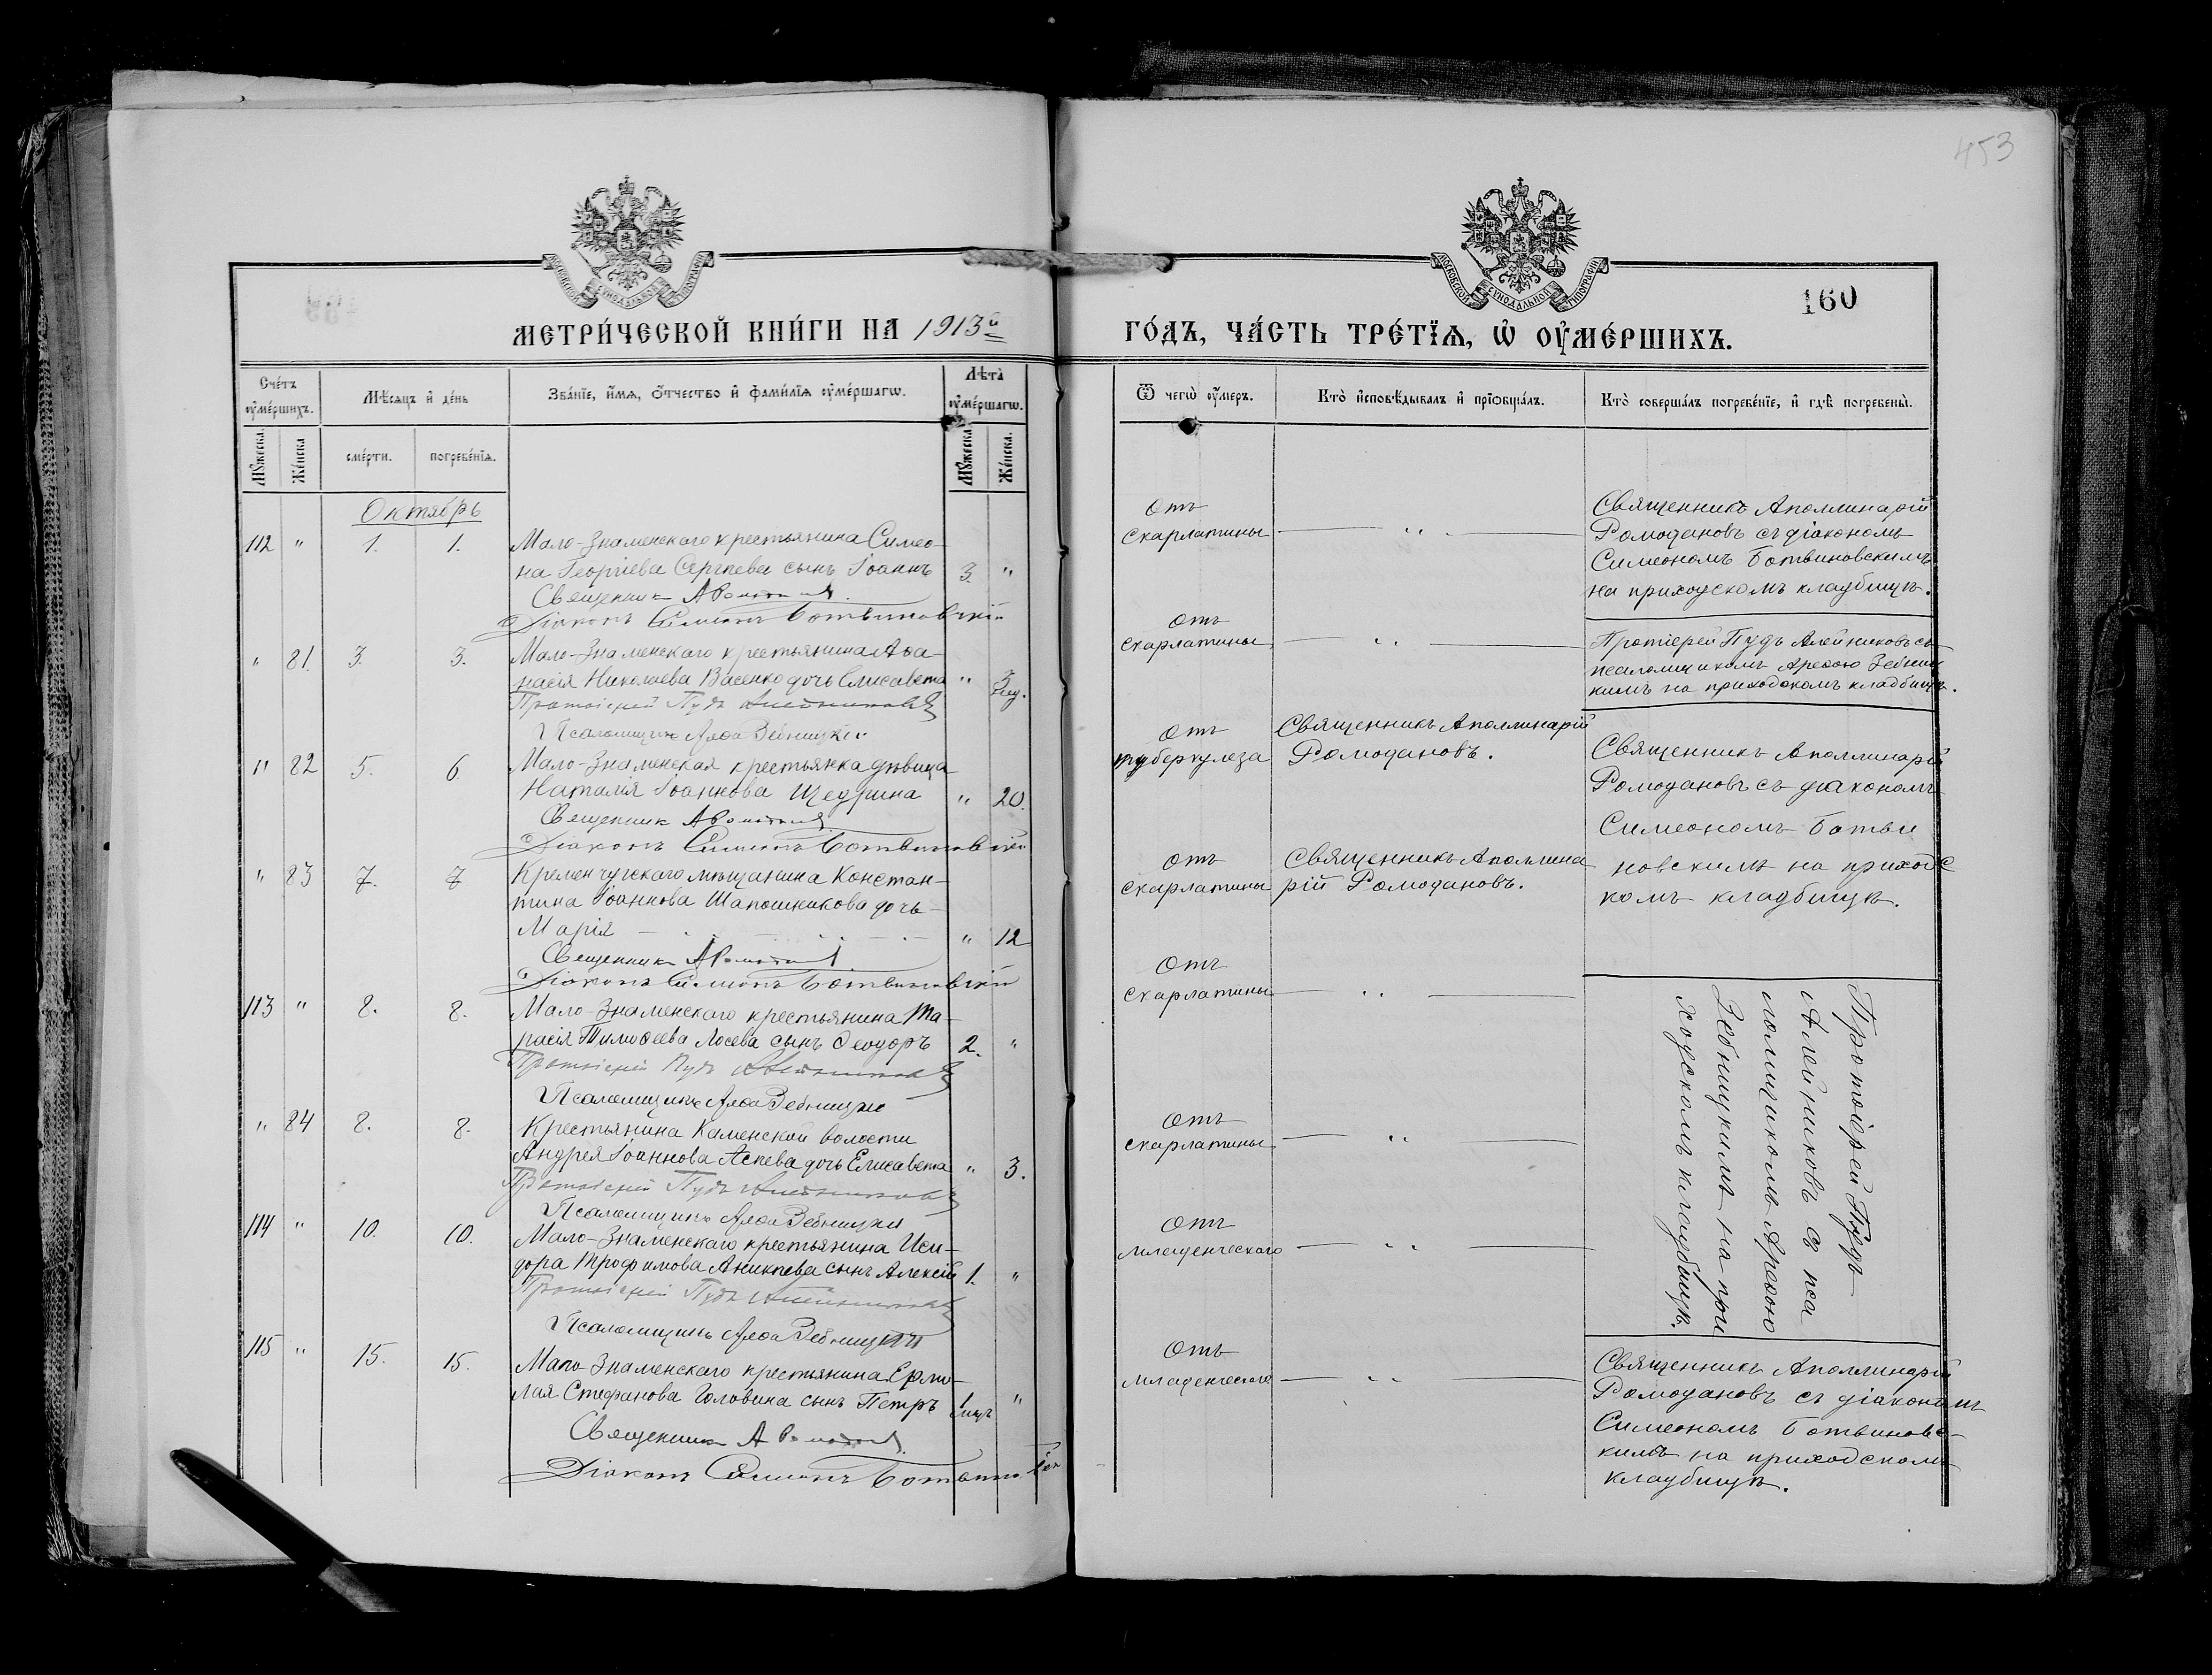 453
МОСКОВСКОЙ СѴНОДАЛЬНОЙ ТИПОГРАФІИ
МОСКОВСКОЙ СѴНОДАЛЬНОЙ ТИПОГРАФІИ
160
МЕТРИ́ЧЕСКОЙ КНИ́ГИ НА 1913й
ГО́ДЪ, ЧА́СТЬ ТРЕ́ТЇѦ, Ѡ҆ ОУ҆МЕ́РШИХЪ.
Сче́тъ оу҆ме́ршихъ.
Мѣ́сяцъ и҆ де́нь
Зва́нїе, и҆́мѧ, ѻ҆́тчество и҆ фами́лїѧ оу҆ме́ршагѡ.
Лѣ́та оу҆ме́ршагѡ.
Мꙋ́жеска.
Же́нска
сме́рти.
погребе́нїѧ.
Мꙋ́жеска.
Же́нска.
Ѿ чегѡ̀ оу҆́меръ.
Кто̀ и҆сповѣ́дывалъ и҆ прїѡбща́лъ.
Кто̀ соверша́лъ погребе́нїе, и҆ гдѣ̀ погребены̀.
Октябрь
112 " 1. 1. Мало-Знаменскаго крестьянина Симео-
на Георгіева Сергѣева сынъ Іоаннъ 3. "
Священникъ А Ромодановъ
Діаконъ Симеонъ Ботвиновскій
отъ
скарлатины
Священникъ Аполлинарій
Ромодановъ съ діакономъ
Симеономъ Ботвиновскимъ
на приходскомъ кладбищѣ.
" 81. 3. 3. Мало-Знаменскаго крестьянина Аѳа-
насія Николаева Васенко дочь Елисавета " 3
Протоіерей Пудъ Алейниковъ
Псаломщикъ Арефа Зебницкій
отъ
скарлатины
Протіерей Пудъ Алейниковъ съ
псаломщикомъ Арефою Зебниц
кимъ на приходскомъ кладбищѣ.
" 82 5. 6 Мало-Знаменская крестьянка дѣвица
Наталія Іоаннова Щедрина " 20.
Священникъ А Ромодановъ
Діаконъ Симеонъ Ботвиновскій
отъ
туберкулеза
Священникъ Аполлинарій
Ромодановъ.
Священникъ Аполлинарій
Ромодановъ съ діакономъ
Симеономъ Ботви
новскимъ на приходс
комъ кладбищѣ.
" 83 7. 7 Кременчугскаго мѣщанина Констан-
тина Іоаннова Шапошникова дочь
Марія " 12
Священникъ А Ромодановъ
Діаконъ Симеонъ Ботвиновскій
отъ
скарлатины
Священникъ Аполлина
рій Ромодановъ.
113 " 8. 8. Мало-Знаменскаго крестьянина Та-
расія Тимоѳеева Лосева сынъ Ѳеодоръ 2. "
Протоіерей Пудъ Алейниковъ
Псаломщикъ Арефа Зебницкій
Отъ
скарлатины
Протоіерей Пудъ
Алейниковъ съ пса
ломщикомъ Арефою
Зебницкимъ на при
ходскомъ кладбищѣ.
" 84 8. 8. Крестьянина Каменской волости
Андрея Іоаннова Аспева дочь Елисавета " 3.
Протоіерей Пудъ Алейниковъ
Псаломщикъ Арефа Зебницкій
отъ
скарлатины
114 " 10. 10. Мало-Знаменскаго крестьянина Иси-
дора Трофимова Аникѣева сынъ Алексій 1. "
Протоіерей Пудъ Алейниковъ
Псаломщикъ Арефа Зебницкій
отъ
младенческаго
115 " 15. 15. Мало-Знаменскаго крестянина Ермо-
лая Стефанова Головина сынъ Петръ 1 мцъ "
Священникъ А Ромодановъ
Діаконъ Симеонъ Ботвиновскій
отъ
младенческаго
Священникъ Аполлинарій
Ромодановъ съ діакономъ
Симеономъ Ботвиновс-
кимъ на приходскомъ
кладбищѣ.